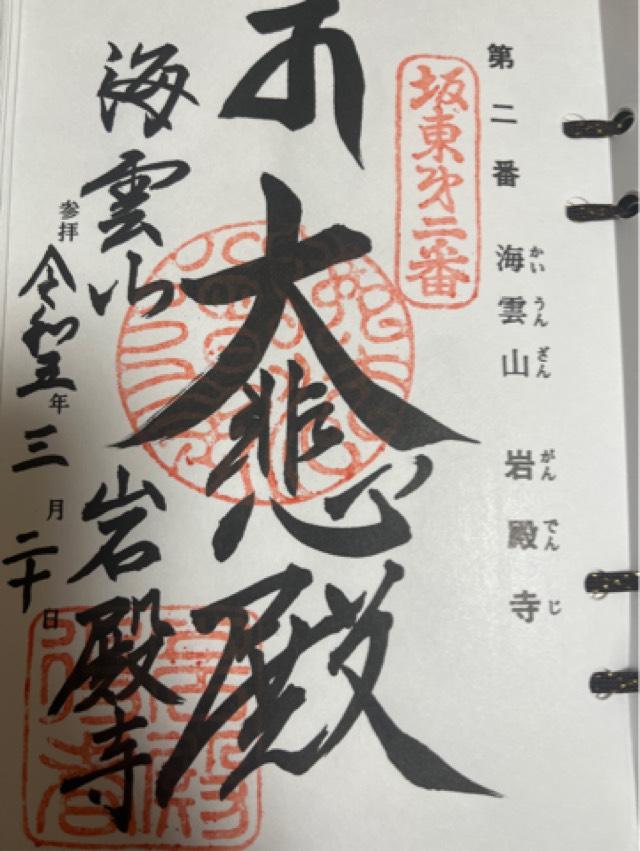 第二番　海雲山　岩殿寺
かいうんざん　がんでんじ
坂東第二番
大悲殿
海雲山　岩殿寺
参拝　令和五年三月二十日